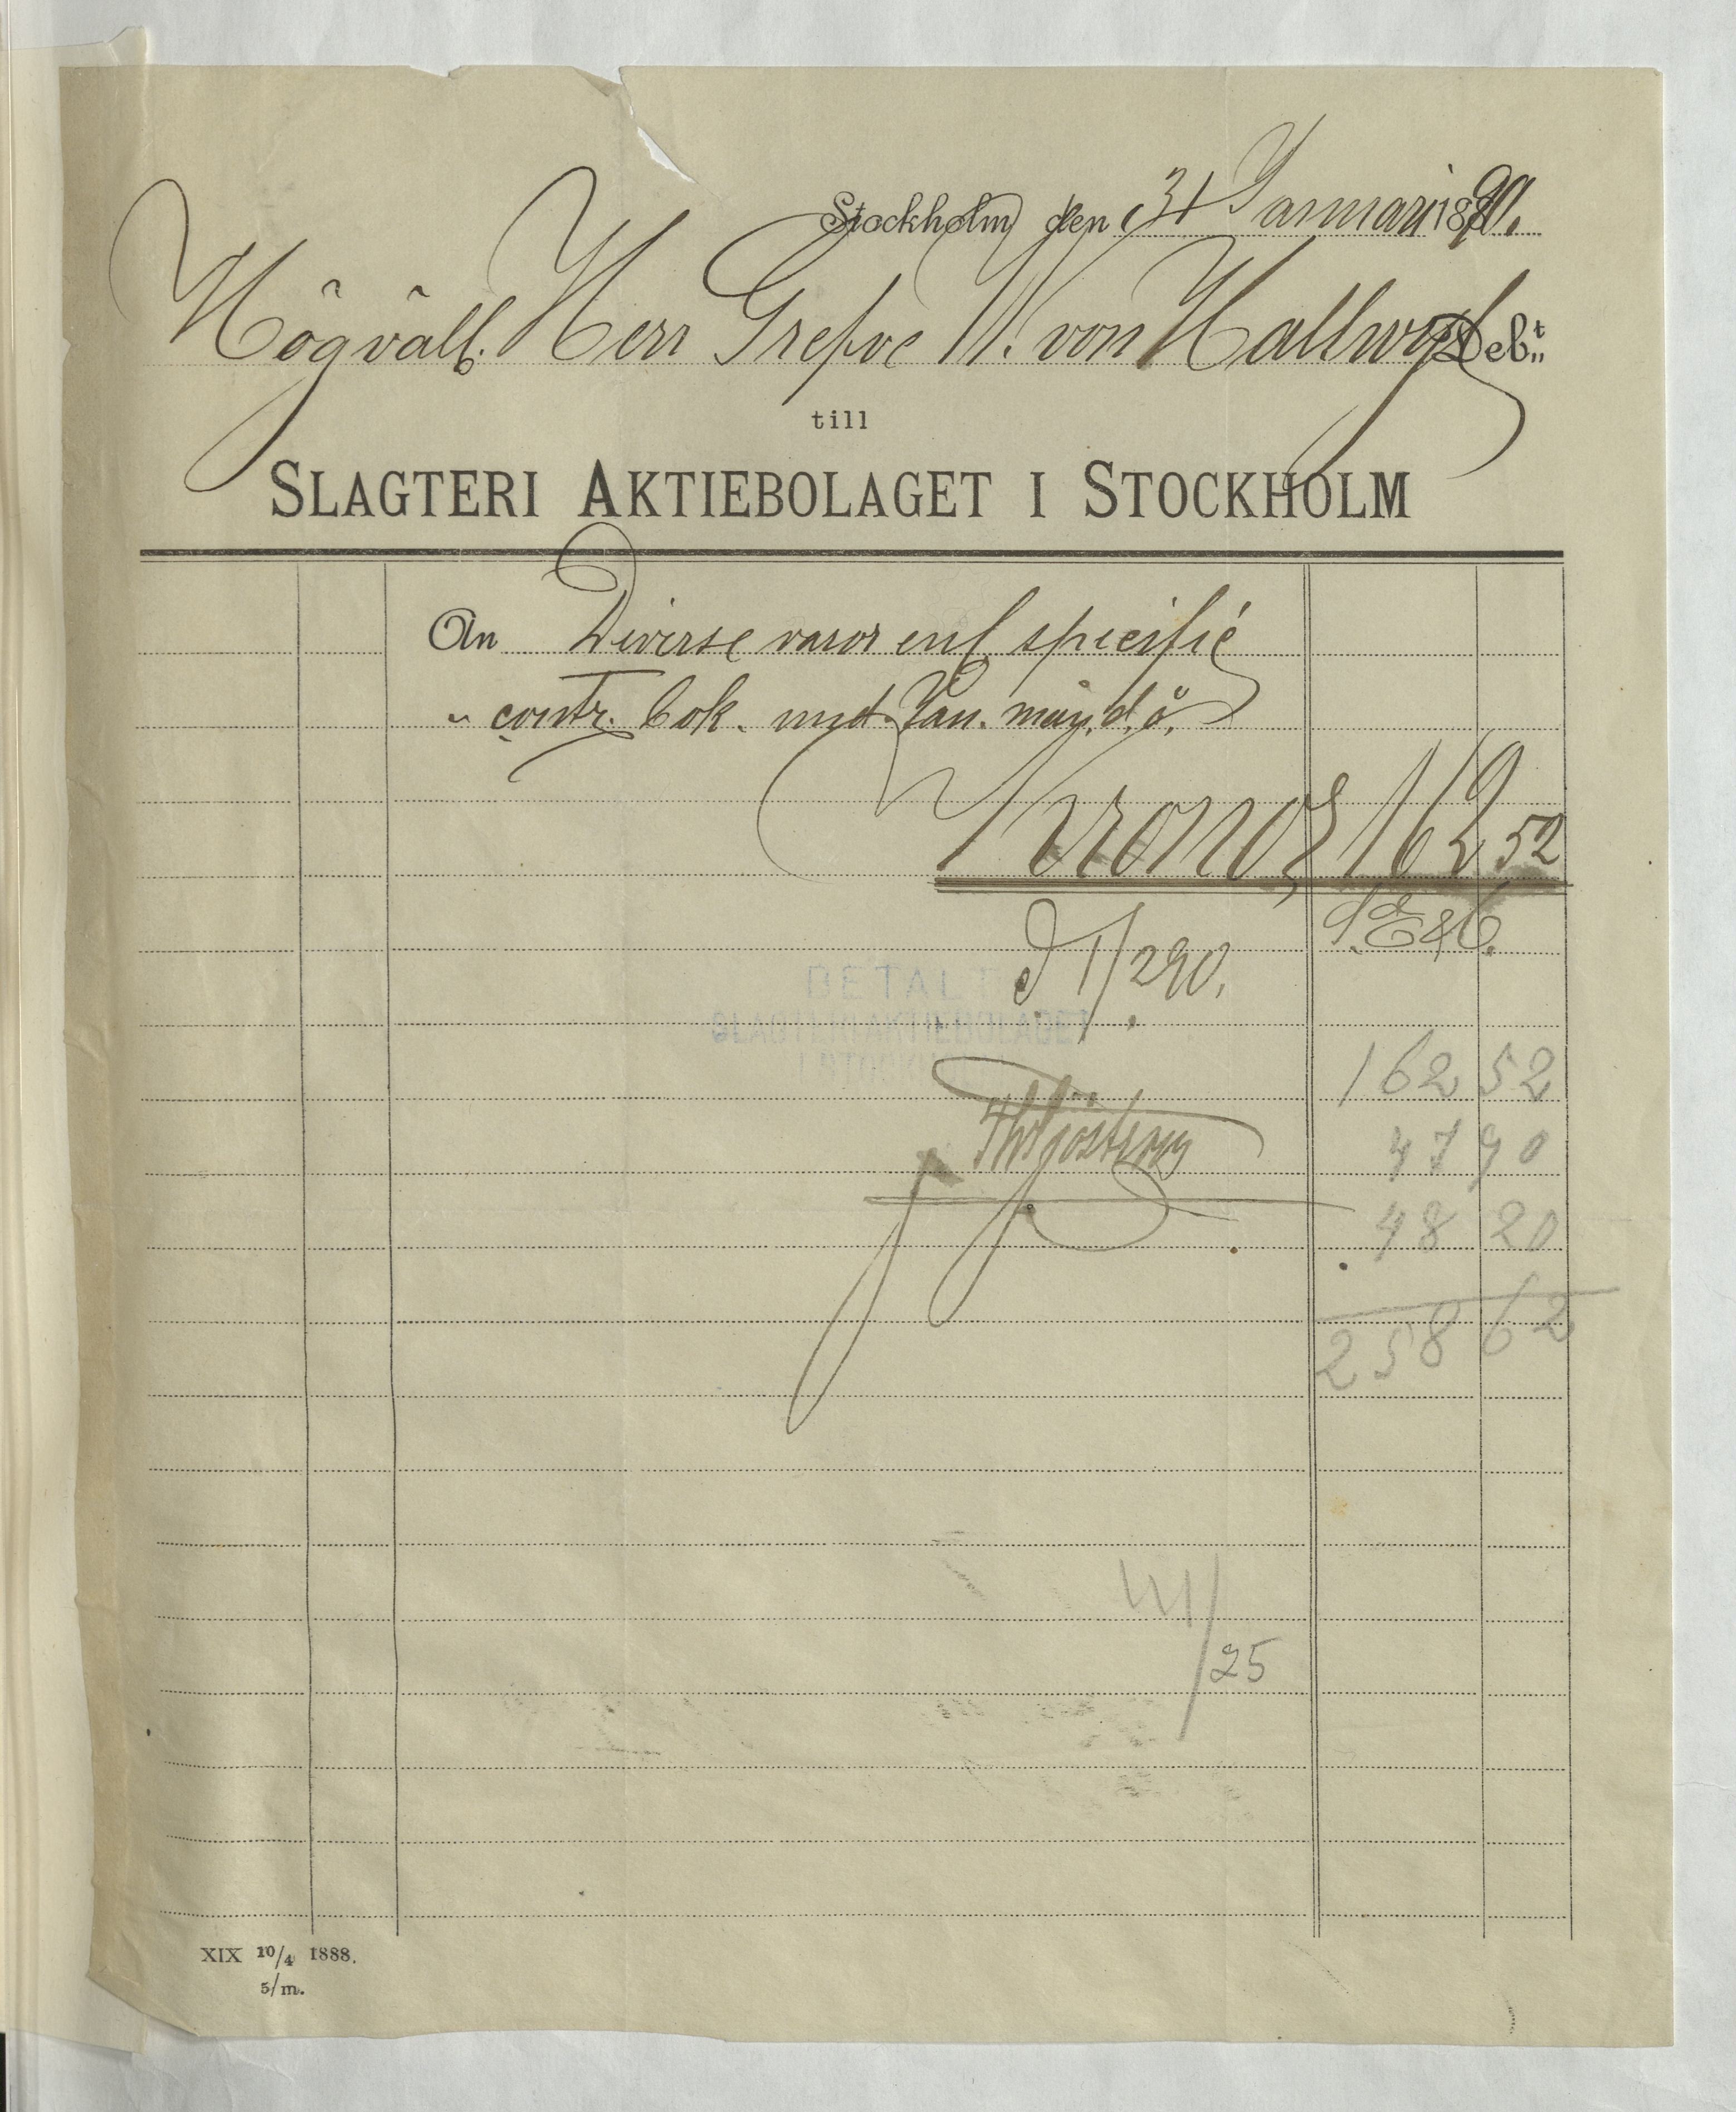 Stockholm den 31 Januari 1890.
Högvälb. Herr Grefve W. von Hallwyl Deb:t
till
SLAGTERI AKTIEBOLAGET I STOCKHOLM
An Diverse varor enl. specifié
" contr. bok. und. Jan. mån. d. å.
Kronor 162 52
S. E. & O.
d 1/2 90.
BETALT
SLAGTERI AKTIEBOLAGET
I STOCKHOLM
162 52
47 90
48 20
258 62
/25
XIX 10/4 1888.
5/m.